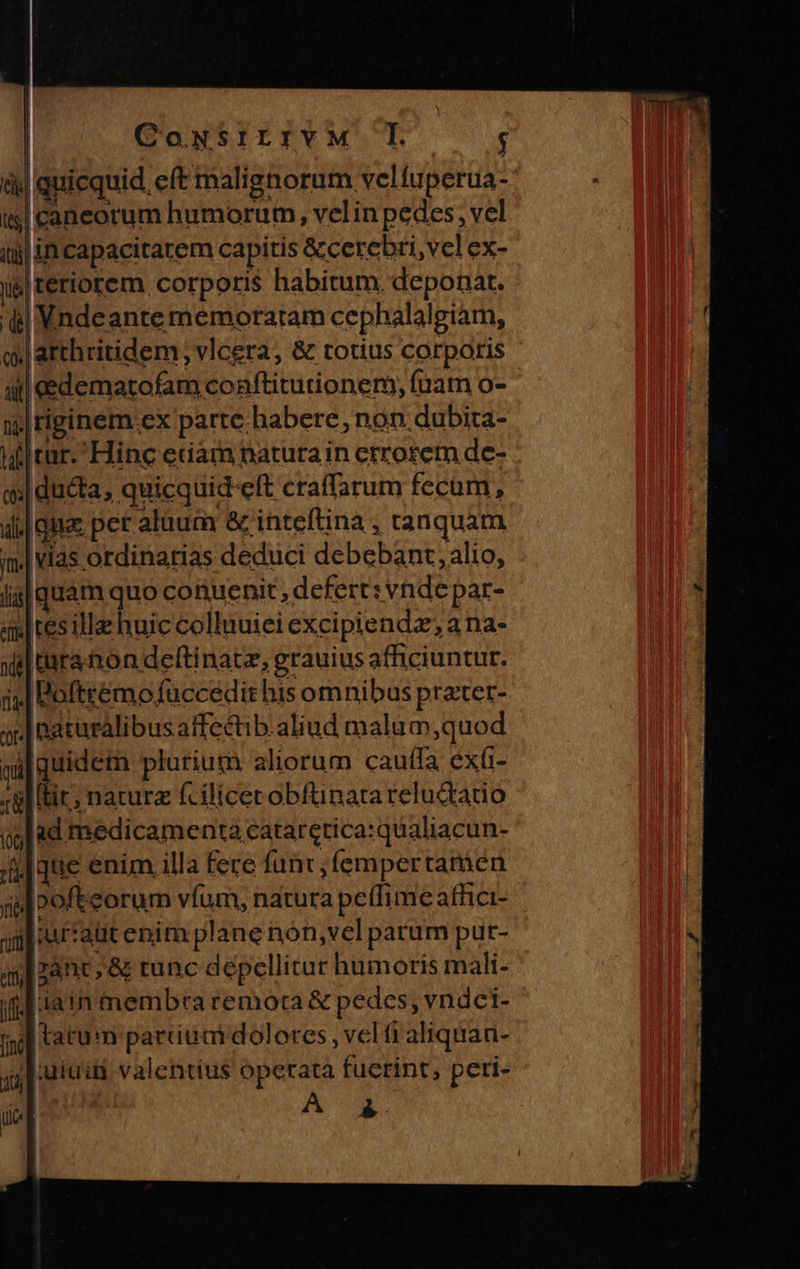 CONSILIVM I. 5
quicquid est malignorum vel superua-
caneorum humorum, vel in pedes, vel
in capacitatem capitis & cerebri, vel ex-
teriorem corporis habitum deponat.
Vnde ante memoratam cephalalgiam,
arthritidem, vlcera, & totius corporis
œdematosam constitutionem, suam o-
riginem ex parte habere, non dubita-
tur. Hinc etiam natura in errorem de-
ducta, quicquid est crassarum fecum,
quæ per aluum & intestina, tanquam
vias ordinarias deduci debebant, alio,
quam quo conuenit, defert: vnde par-
tes illæ huic colluuiei excipiendæ, a na-
tura non destinatæ, grauius afficiuntur.
Postremo succedit his omnibus præter-
naturalibus affectib. aliud malum, quod
quidem plurium aliorum caussa exsi-
stit, naturæ scilicet obstinata reluctatio
ad medicamenta catarctica: qualiacun-
que enim illa fere sunt, semper tamen
post eorum vsum, natura pessime affici-
tur: aut enim plane non, vel parum pur-
gant, & tunc depellitur humoris mali-
tia in membra remota & pedes, vnde i-
tatum partium dolores, vel si aliquan-
valentius operata fuerint, peri-
A